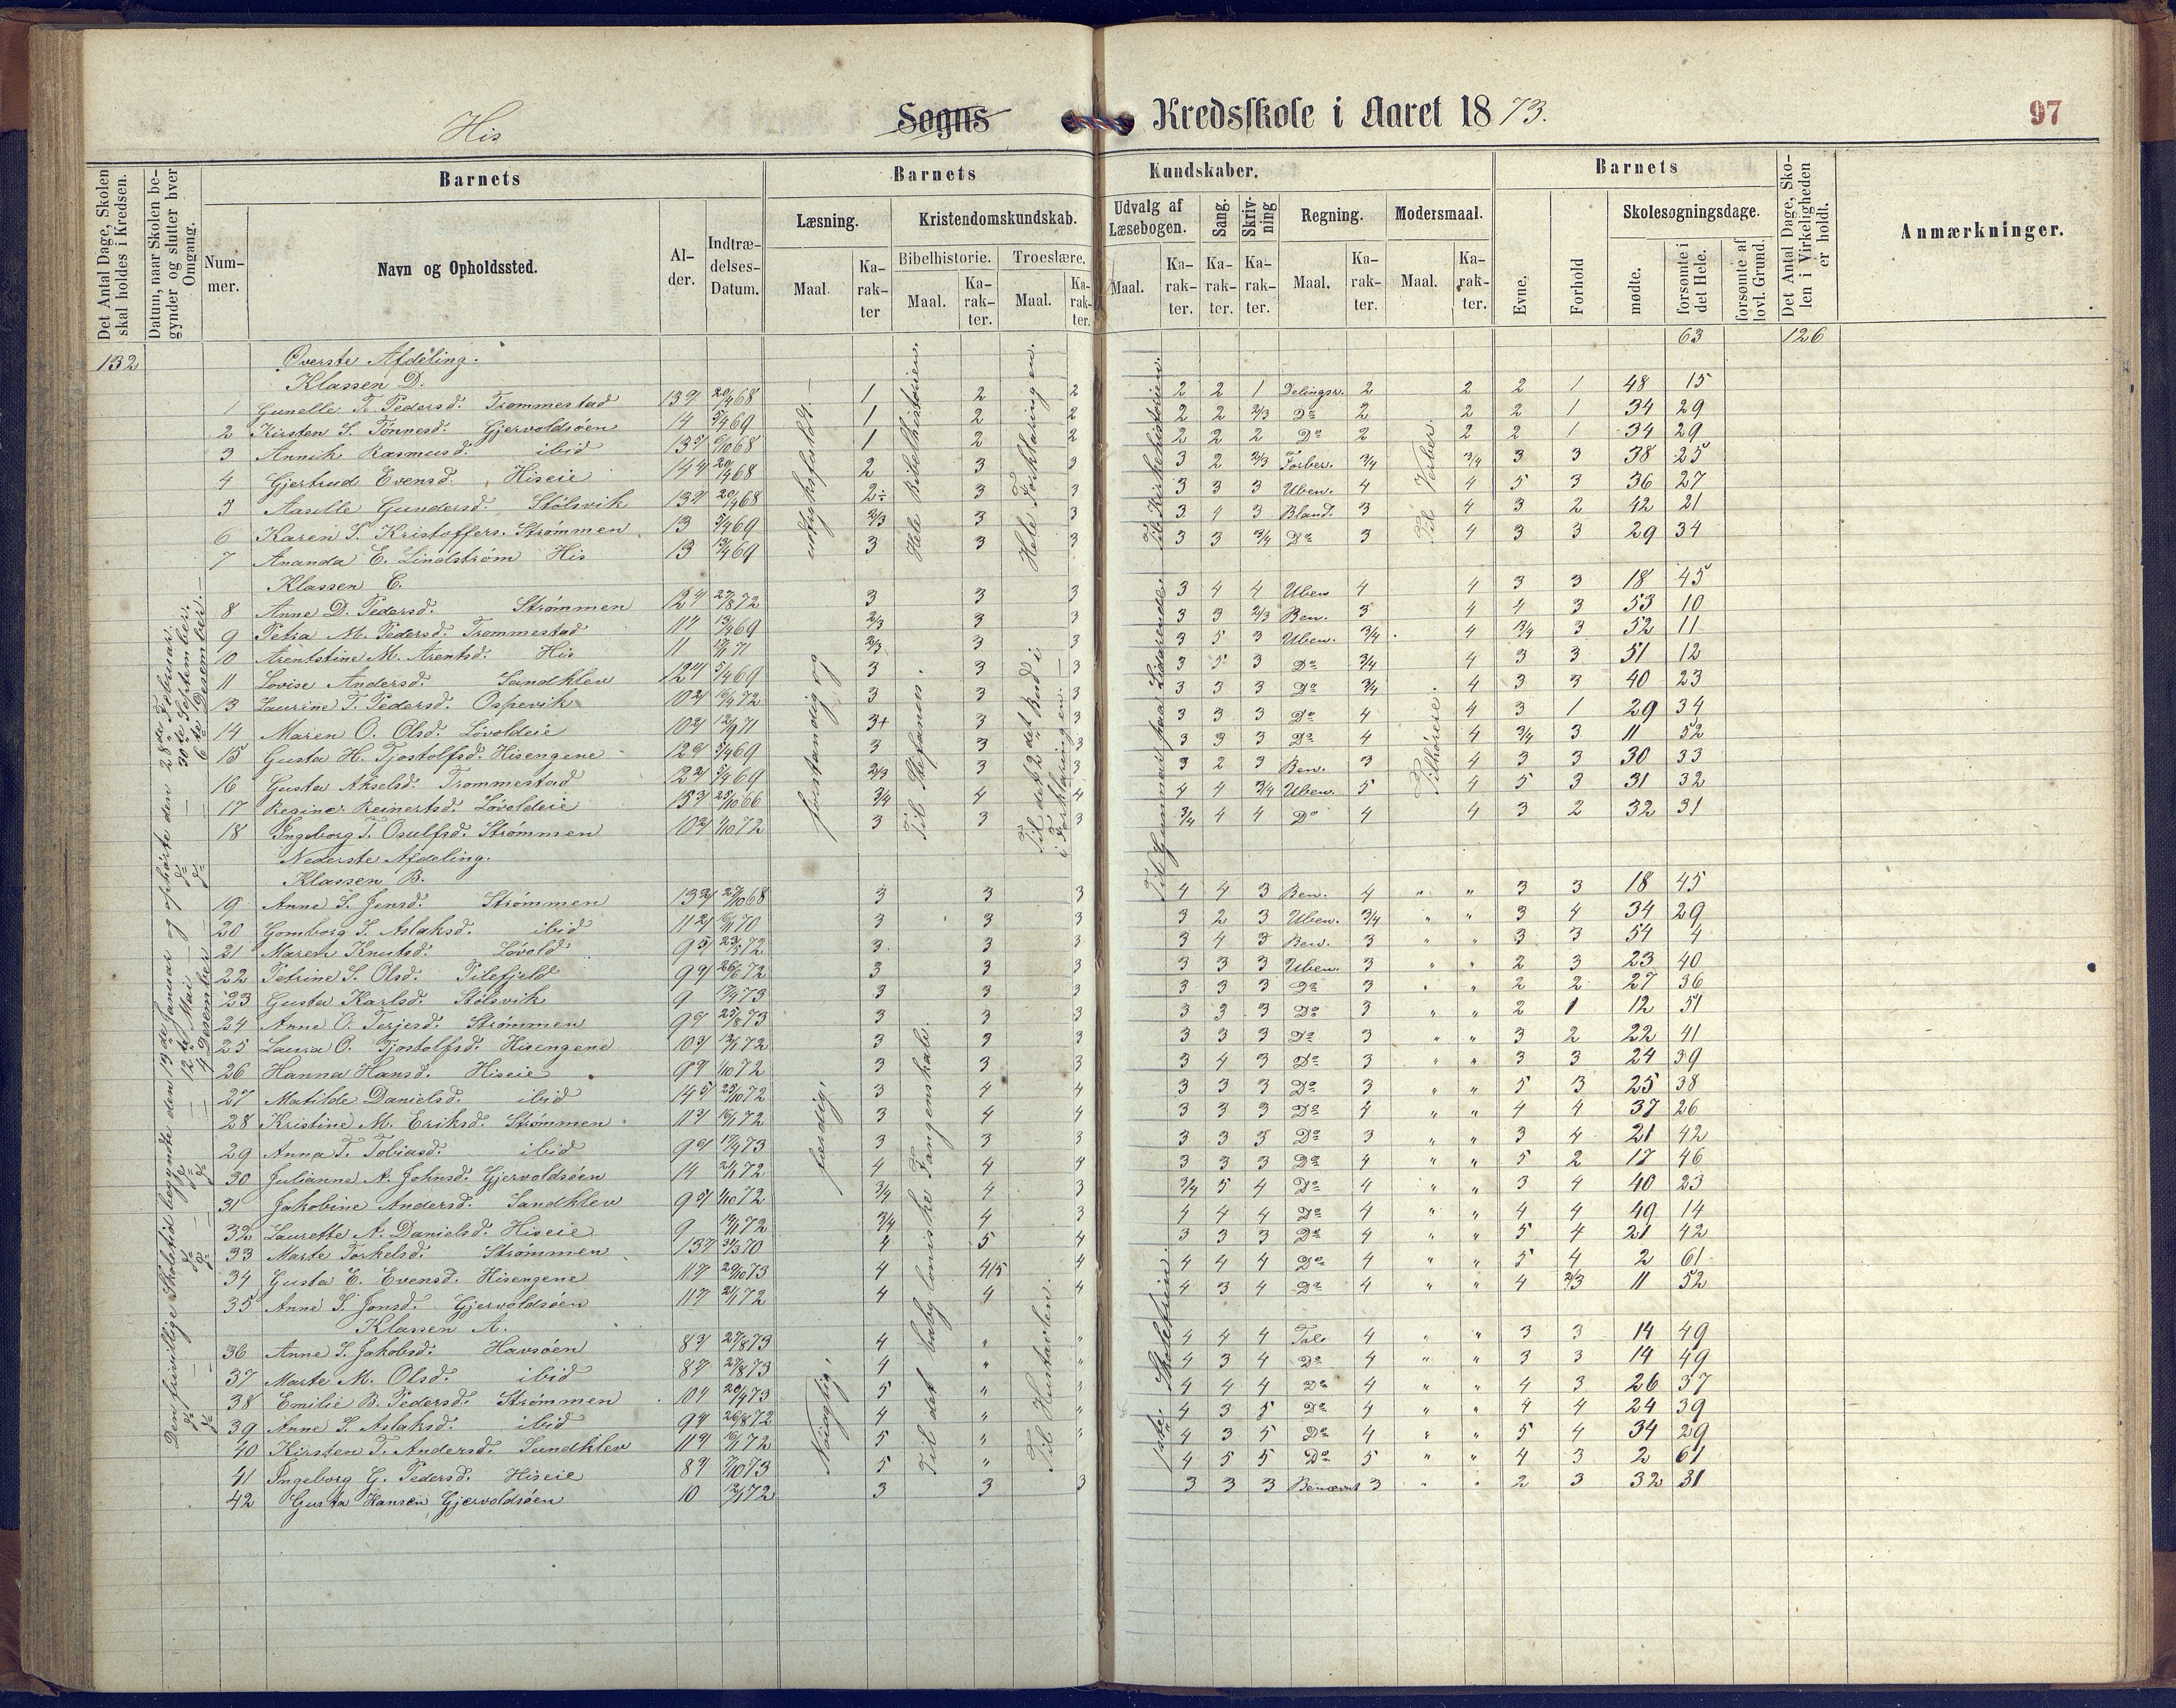 His Sogns Kredsskole i Aaret 1873.
97
Det Antal Dage, Skolen skal holdes i Kredsen.
Datum, naar Skolen begynder og slutter hver Omgang.
Barnets
Nummer.
Navn og Opholdssted.
Alder.
Indtrædelses-Datum.
Barnets Kundskaber.
Læsning.
Maal.
Karakter
Kristendomskundskab.
Bibelhistorie.
Maal.
Karakter.
Troeslære.
Maal.
Karakter.
Udvalg af Læsebogen.
Maal.
Karakter.
Sang.
Karakter.
Skrivning
Karakter.
Regning.
Maal.
Karakter.
Modersmaal.
Maal.
Karakter.
Barnets
Evne.
Forhold
Skolesøgningsdage.
mødte.
forsømte i det Hele.
forsømte af lovl. Grund.
Det Antal Dage, Skolen i Virkeligheden er holdt.
Anmærkninger.
132 63 126
Øverste Afdeling.
Klassen D.
1 Gunelle T. Pedersd. Trommestad 1 2 2 2 2 1 Delingsr. 2 2 2 1 48 15
2 Kirsten S. Tønnesd. Gjervoldsøen 14 5/4 69 1 2 2 2 2 2/3 Do 2 2 2 1 34 29
3 Annik Rasmusd. ibid 1 2 2 2 2 2 Do 2 2 2 1 34 29
4 Gjertrud Evensd. Hiseie 2 3 3 3 2 2/3 Forber. 3/4 3/4 3 3 38 25
5 Aaselle Gundersd. Stølsvik 2÷ 3 3 3 3 3 Uben. 4 4 5 3 36 27
6 Karen S. Kristoffers. Strømmen 13 5/4 69 2/3 3 3 3 4 3 Bland. 3 4 3 2 42 21
7 Ananda E. Lindstrøm His 13 13/4 69 3 3 3 3 3 3/4 Do 3 4 3 3 29 34
Klassen C.
8 Anne D. Pedersd. Strømmen 27/8 72 3 3 3 3 4 4 Uben 4 4 3 3 18 45
9 Petra M. Pedersd. Trommestad 13/4 69 2/3 3 3 3 3 2/3 Ben. 3 4 4 3 53 10
10 Arentstine M. Arentsd. His 11 2/3 3 3 3 5 3 Uben. 3/4 4 3/4 3 52 11
11 Lovise Andersd. Sandklev 5/4 69 3 3 3 3 5 3 Do 3/4 4 3 3 51 12
13 Laurine T. Pedersd. Ospevik 3 3 3 3 3 3 Do 3/4 4 3 3 40 23
14 Maren O. Olsd. Løvoldeie 12/9 71 3+ 3 3 3 3 3 Do 4 4 3 1 29 34
15 Gusta H. Tjostolfsd. Hisengene 5/4 69 3 3 3 3 3 3 Do 4 4 3/4 3 11 52
16 Gusta Akselsd. Trommestad 5/4 69 2/3 3 3 3 2 3 Ben. 3 4 3 3 30 33
17 Regine Reinertsd. Løvoldeie 25/10 66 3/4 4 4 4 4 3/4 Uben. 5 4 5 3 31 32
18 Ingeborg T. Osulfsd. Strømmen 1/10 72 3 3 3 3/4 4 4 Do 4 4 3 2 32 31
Nederste Afdeling.
Klassen B.
19 Anne S. Jensd. Strømmen 27/10 68 3 3 3 4 4 3 Ben. 4 " " 3 3 18 45
20 Gomborg T. Aslaksd. ibid 3 3 3 3 2 3 Uben. 3/4 " " 3 4 34 29
21 Maren Knutsd. Løvold 23/5 72 3 3 3 3 4 3 Ben. 3 " " 3 3 54 4
22 Petrine S. Olsd. Pilefjeld 26/6 72 3 3 3 3 3 3 Uben. 3 " " 2 3 23 40
23 Gusta Karlsd. Stølsvik 9 17/4 73 3 3 3 3 3 3 Do 3 " " 2 2 27 36
24 Anne O. Terjesd. Strømmen 25/8 73 3 3 3 3 3 3 Do 3 " " 2 1 12 51
25 Laura O. Tjostolfsd. Hisengene 3 3 3 3 3 3 Do 3 " " 3 2 22 41
26 Hanna Hansd. Hiseie 1/10 72 3 3 3 3 4 3 Do 3 " " 3 3 24 39
27 Matilde Danielsd. ibid 25/10 72 3 4 4 3 3 3 Do 3 " " 5 3 25 38
28 Kristine M. Eriksd. Strømmen 3 4 4 3 3 3 Do 4 " " 4 4 37 26
29 Anna T. Tobiasd. ibid 17/4 73 3 3 3 3 3 3 Do 3 " " 3 4 21 42
30 Julianne A. Johnsd. Gjervoldsøen 14 4 4 4 3 3 3 Do 4 " " 5 2 17 46
31 Jakobine Andersd. Sandklev 1/10 72 3/4 4 3 3/4 5 4 Do 4 " " 3 4 40 23
32 Laurette A. Danielsd. Hiseie 9 3/4 4 3 4 4 4 Do 4 " " 4 4 49 14
33 Marte Torkelsd. Strømmen 31/3 70 4 5 4 3 3 3 Do 4 " " 5 4 21 42
34 Gusta E. Evensd. Hisengene 20/10 73 4 4/5 4 4 4 4 Do 4 " " 5 4 2 61
35 Anne S. Jonsd. Gjervoldsøen 4 4 4 4 3 4 Do 4 " " 4 2/3 11 52
Klassen A.
36 Anne S. Jakobsd. Havsøen 27/8 73 4 " " 4 4 4 Tal. 4 " " 3 3 14 49
37 Marte M. Olsd. ibid 27/8 73 4 " " 4 3 4 Do 4 " " 3 3 14 49
38 Emilie B. Pedersd. Strømmen 5 " 4 4 4 Do 4 " " 4 3 26 37
39 Anne S. Aslaksd. ibid 26/8 72 4 " " 4 3 5 Do 4 " " 4 4 24 39
40 Kirsten T. Andersd. Sandklev 5 " " 4 3 5 Do 4 " " 5 4 34 29
41 Ingeborg G. Pedersd. Hiseie 5 " 4 5 5 Do 5 " " 4 3 2 61
42 Gusta Hansen Gjervoldsøen 10 3 3 3 3 3 3 Benævnt 3 " " 2 3 32 31
Den frivillige Skoletid begynte den 13de Januar og ophørte den 28de Februar.
do do 12te Mai 30te September.
do do 4 Desember 6te Desember.
indtryksfuldt.
forstaandig og
færdig,
Nøiagtig,
Hele Bibelhistorien.
Til Stefanen.
Til det babyloniske Fangenskab.
Hele Forklaringen.
Til det 2det Bud i
i Forklaringen.
Til Hustavlen.
Til Kirkehistorien.
Til Gummar paa Lidarende.
1ste Skoletrin.
Til Verber.
Tilhørere.